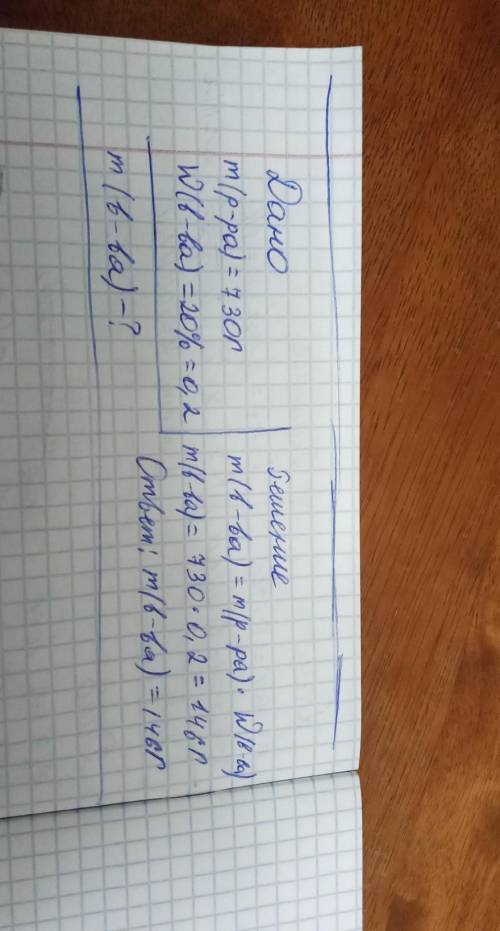 Дано
m(р-ра) = 730г
W(в-ва) = 20% = 0,2
m(в-ва) - ?
Решение
m(в-ва) = m(р-ра) · W(в-ва)
m(в-ва) = 730 · 0,2 = 146г
Ответ: m(в-ва) = 146г